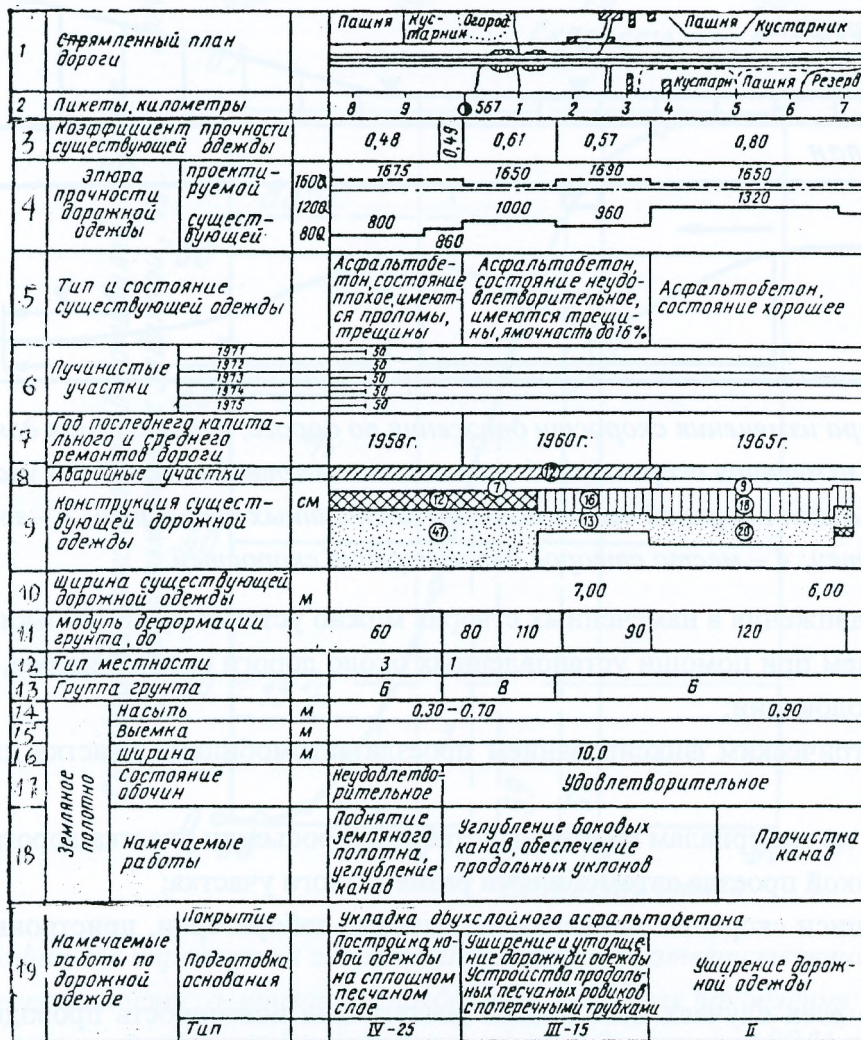 Пашня Кус- Огород Пашня Кустарник
тарник
1 Спрямленный план
дороги
Кустарн Пашня Резерв
2 Пикеты, километры 8 9 567 1 2 3 4 5 6 7
3 Коэффициент прочности
существующей одежды 0,48 0,49 0,61 0,57 0,80
4 Эпюра
прочности
дорожной
одежды
проекти-
руемой
сущест-
вующей
1600 1200 800
1675 1650 1690 1650
800 860 1000 960 1320
5 Тип и состояние
существующей одежды
Асфальтобе-
тон, состояние
плохое, имеют-
ся проломы,
трещины
Асфальтобетон,
состояние неудо-
влетворительное,
имеются трещи-
ны, ямочность до 16%
Асфальтобетон,
состояние хорошее
6 Пучинистые
участки
1971 50
1972 50
1973 50
1974 50
1975 50
7 Год последнего капита-
льного и среднего
ремонтов дороги
1958г. 1960г. 1965г.
8 Аварийные участки
9 Конструкция сущест-
вующей дорожной
одежды
см
7 9
12 16 18
13
47 20
10 Ширина существующей
дорожной одежды м 7,00 6,00
11 Модуль деформации
грунта, до 60 80 110 90 120
12 Тип местности 3 1
13 Группа грунта Б В Б
Земляное
полотно
14 Насыпь м 0.30-0,70 0,90
15 Выемка м
16 Ширина м 10,0
17 Состояние
обочин
Неудовлетво-
рительное
Удовлетворительное
18 Намечаемые
работы
Поднятие
земляного
полотна,
углубление
канав
Углубление боковых
канав, обеспечение
продольных уклонов
Прочистка
канав
19 Намечаемые
работы по
дорожной
одежде
Покрытие Укладка двухслойного асфальтобетона
Подготовка
основания
Постройка но-
вой одежды
на сплошном
песчаном
слое
Уширение и утолще-
ние дорожной одежды
Устройство продоль-
ных песчаных ровиков
с поперечными трубками
Уширение дорож-
ной одежды
Тип IV-25 III-15 II